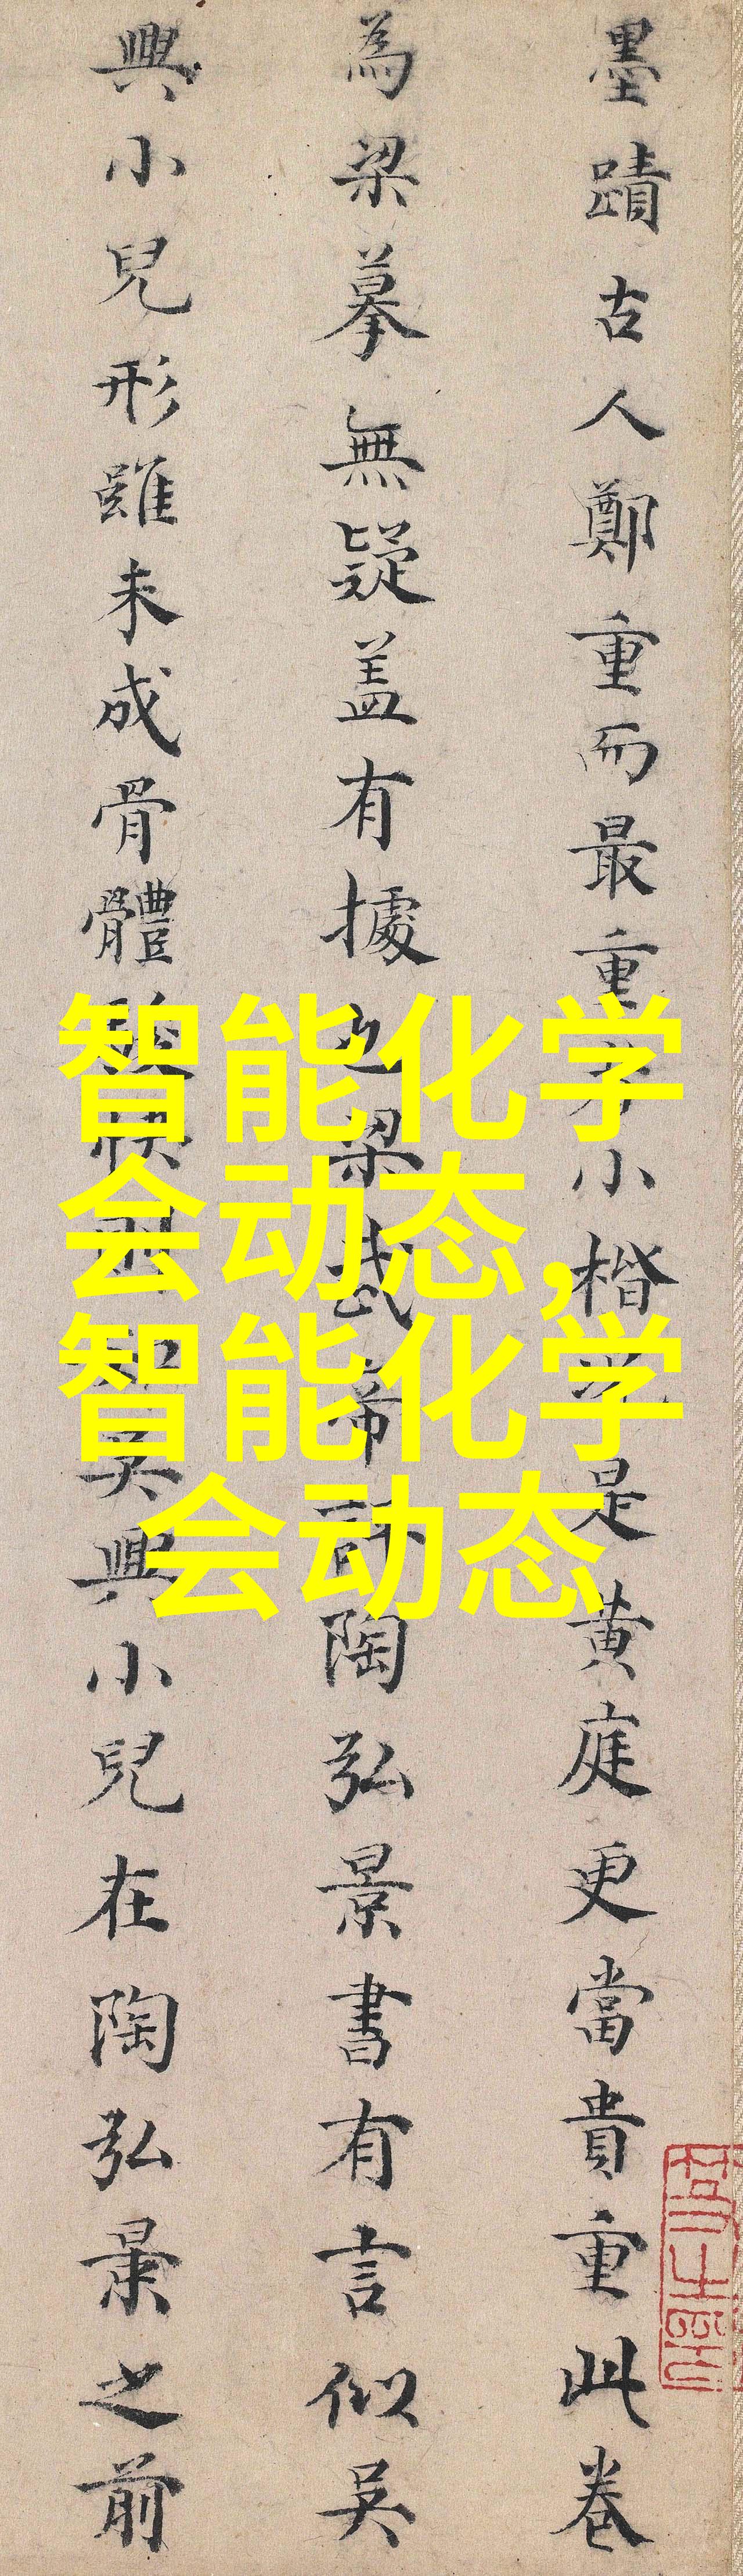 墨蹟古人鄭重而最重者小楷小楷是黄庭更當貴重此卷
為梁摹無疑盖有據也梁武帝評陶弘景書有言似吴
興小兒形雖未成骨體駿快則知吴興小兒在陶弘景之前
智能化学
会动态,
智能化学
会动态